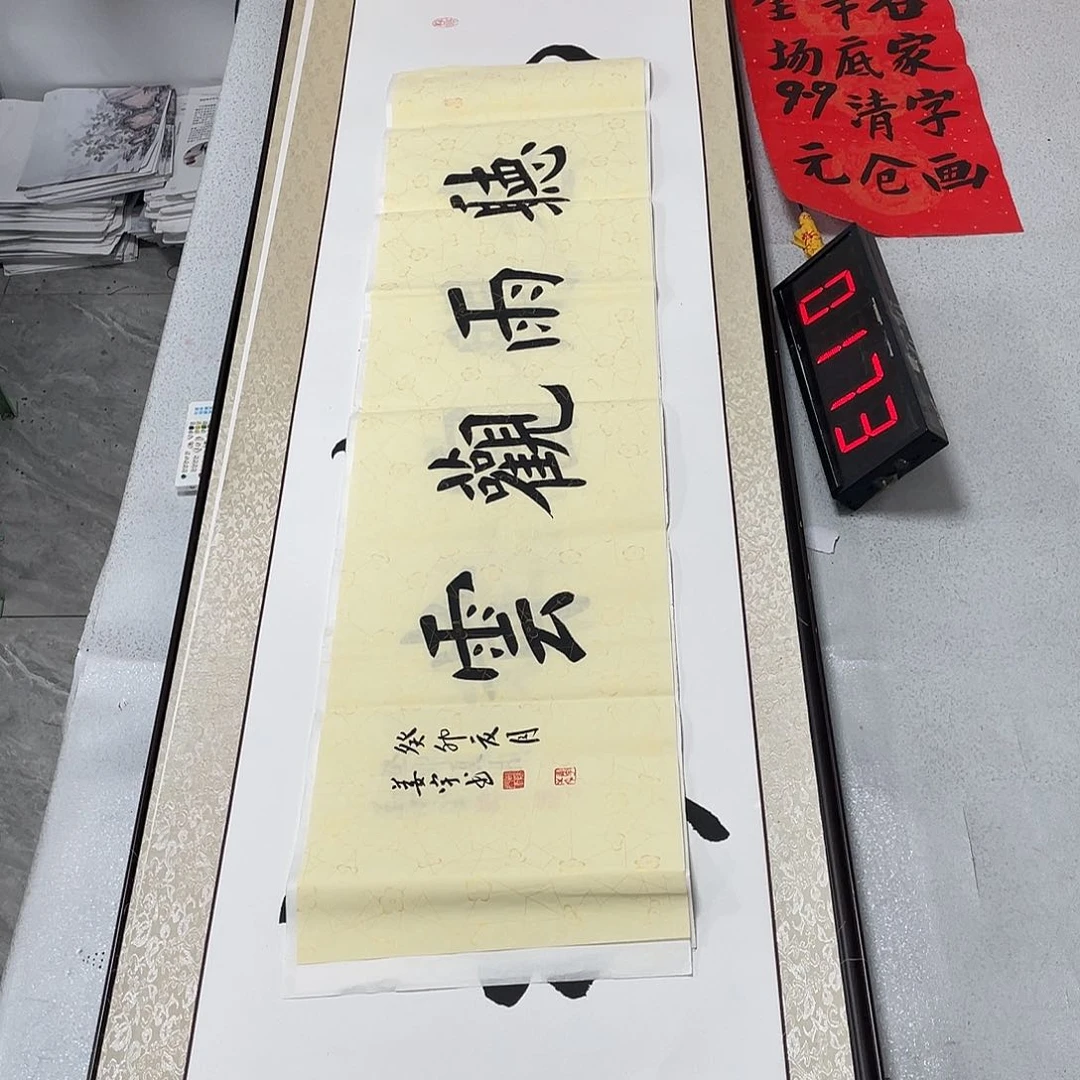 聽雨觀雲
癸卯夏月
名家字画
年底清仓
全场9.9元
0173